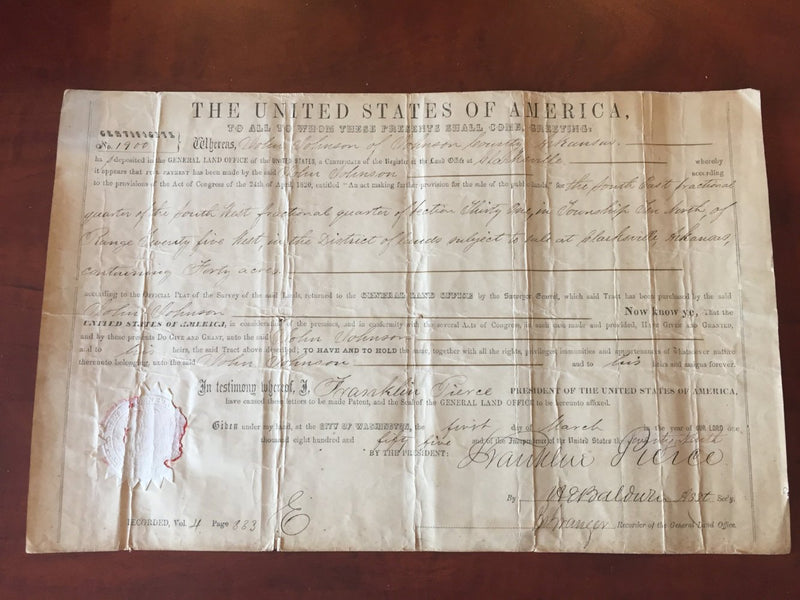 THE UNITED STATES OF AMERICA,
TO ALL TO WHOM THESE PRESENTS SHALL COME, GREETING:
CERTIFICATE
No. 1900 } Whereas, John Johnson of Johnson County Arkansas
ha s deposited in the GENERAL LAND OFFICE of the UNITED STATES, a Certificate of the Register of the Land Office at Clarksville whereby
it appears that FULL PAYMENT has been made by the said John Johnson according
to the provisions of the Act of Congress of the 24th of April, 1820, entitled "An act making further provision for the sale of the public lands," for the South East fractional
quarter of the South West fractional quarter of Section Thirty One, in Township Ten North, of
Range Twenty five West, in the District of Lands subject to sale at Clarksville, Arkansas,
containing Forty acres
according to the OFFICIAL PLAT of the Survey of the said Lands, returned to the GENERAL LAND OFFICE by the Surveyor General, which said Tract has been purchased by the said
John Johnson Now know ye, That the
UNITED STATES OF AMERICA, in consideration of the premises, and in conformity with the several Acts of Congress, in such case made and provided, HAVE GIVEN AND GRANTED,
and by these presents DO GIVE AND GRANT, unto the said John Johnson
and to his heirs, the said Tract above described; TO HAVE AND TO HOLD the same, together with all the rights, privileges, immunities and appurtenances of whatsoever nature
thereunto belonging, unto the said John Johnson and to his heirs and assigns forever.
In testimony whereof, I, Franklin Pierce PRESIDENT OF THE UNITED STATES OF AMERICA,
have caused these letters to be made Patent, and the Seal of the GENERAL LAND OFFICE to be hereunto affixed.
Given under my hand, at the CITY OF WASHINGTON, the first day of March in the year of OUR LORD one
thousand eight hundred and fifty five and of the Independence of the United States the Seventy Ninth
BY THE PRESIDENT: Franklin Pierce
By H E Baldwin Asst Sec'y.
RECORDED, Vol. 4 Page 383 Recorder of the General Land Office.